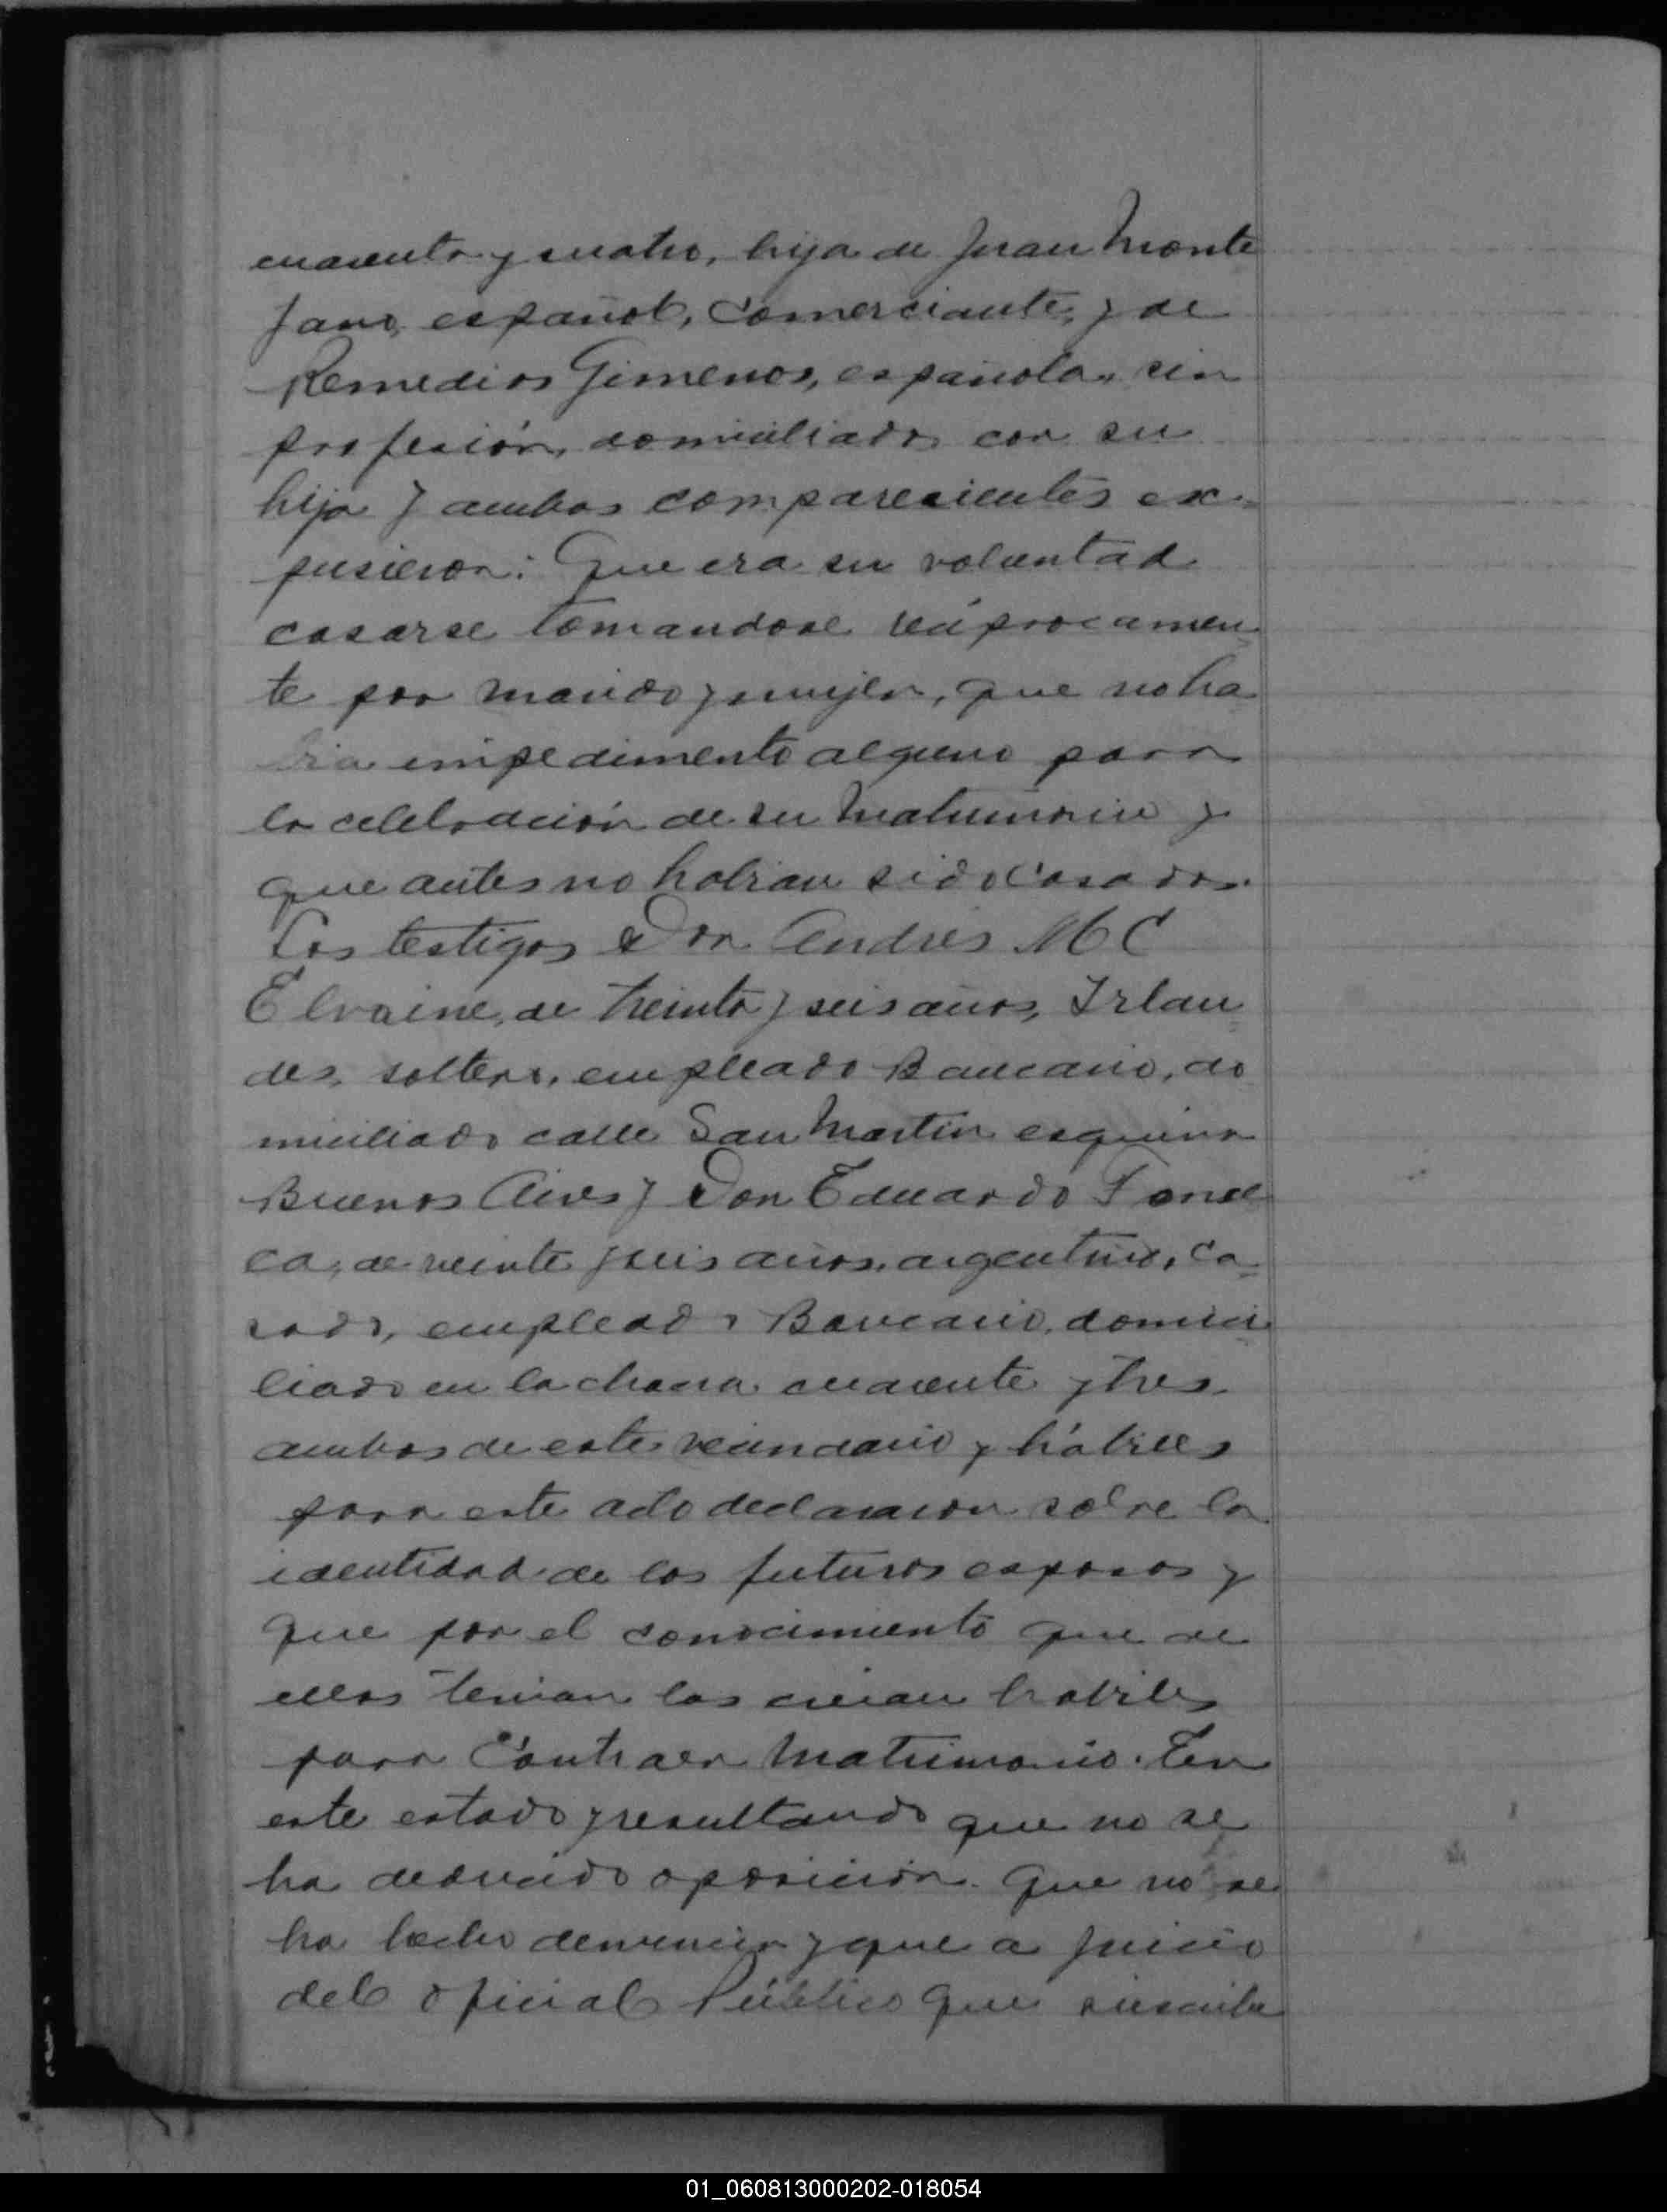 cuarenta y cuatro, hija de Juan Monte
jano, español, Comerciante, y de
Remedios Gimenos, española, sin
profesión, domiciliados con su
hija y ambos comparecientes ex-
pusieron: Que era su voluntad
casarse tomandose recíprocamen
te por marido y mujer, que no ha
bia impedimento alguno para
la celebración de su Matrimonio y
que antes no habian sido Casados.
Los testigos Don Andres Mc
Elvaine, de treinta y seis años, Irlan
des, soltero, empleado Bancario, do
miciliado calle San Martin esquina
Buenos Aires y Don Eduardo Fonse
ca, de veinte y seis años, argentino, ca
sado, empleado Bancario, domici
liado en la chacra cuarenta y tres
ambos de este vecindario y hábiles
para este acto declararon sobre la
identidad de los futuros esposos y
que por el conocimiento que de
ellos tenian los creian habiles
para Contraer Matrimonio. En
este estado y resultando que no se
ha deducido oposicion. Que no se
ha hecho denuncia y que a juicio
del Oficial Público que suscribe
01_060813000202-018054